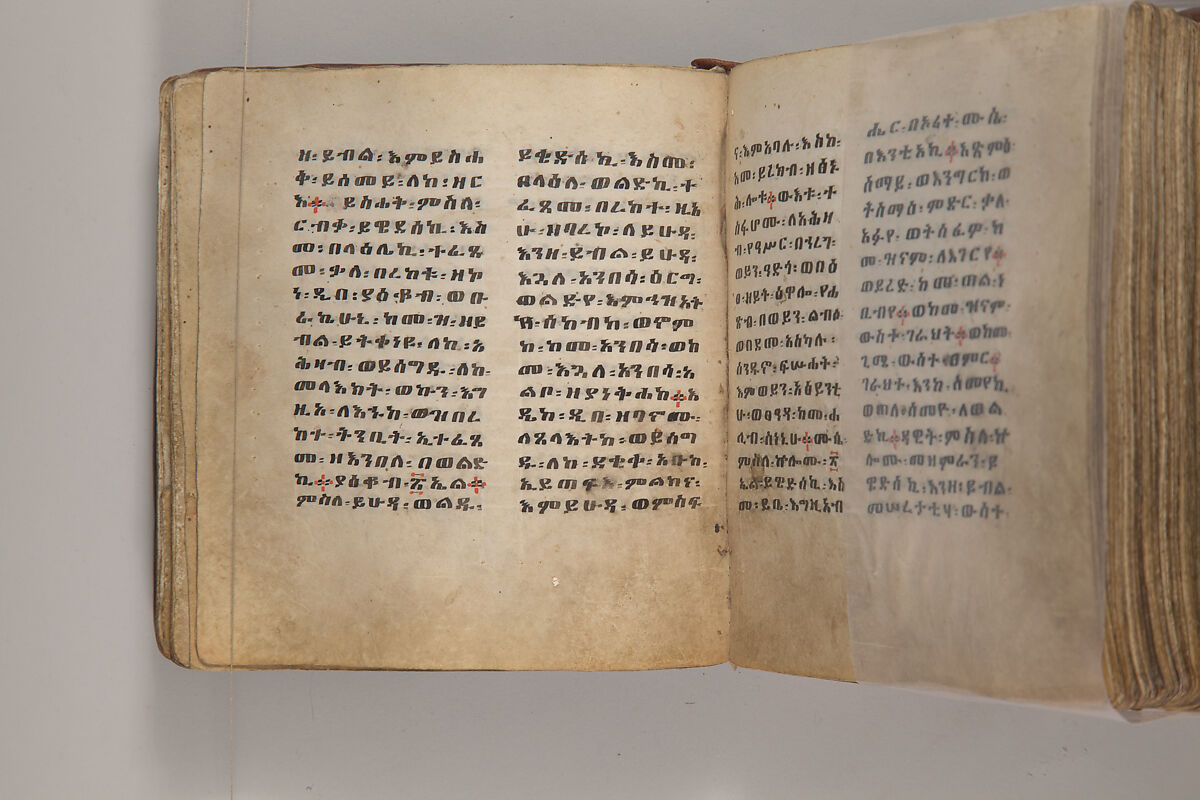 ዘ፡ ይብል፡ እምይስሐ
ቅ፡ ይሰመይ፡ ለከ፡ ዘር
እ። ይስሐት፡ ምስለ፡
ርብቃ፡ ይዌድሰኪ፡ እስ
መ፡ በላዕሌኪ፡ ተፈጸ
መ፡ ቃለ፡ በረከቱ፡ ዘኮ
ነ፡ ዲበ፡ ያዕቆብ፡ ወቡ
ራኪሁኒ፡ ከመ፡ ዝ፡ ዘይ
ብል፡ ይትቀነይ፡ ለከ፡ አ
ሕዛብ፡ ወይሰግዱ፡ ለከ፡
መላእክት፡ ወኵን፡ እግ
ዚአ፡ ለእኁከ፡ ወዝበረ
ከተ፡ ትንቢት፡ ኢተፈጸ
መ፡ ዘእንበለ፡ በወልድ
ኪ። ያዕቆብ፡ ፳ኤል።
ምስለ፡ ይሁዳ፡ ወልዱ፡
ይቄድሰኪ፡ እስመ፡
በላዕለ፡ ወልድኪ፡ ተ
ፈጸመ፡ በረከተ፡ ዚአ
ሁ፡ ዘባረኮ፡ ለይሁዳ፡
እንዘ፡ ይብል፡ ይሁዳ፡
እጓለ፡ አንበሳ፡ ዕርግ፡
ወልድየ፡ እምኅዝአት
የ፡ ሰከብከ፡ ወኖም
ከ፡ ከመ፡ አንበሳ፡ ወከ
መ፡ እጓለ፡ አንበሳ፡ አ
ልቦ፡ ዘያነትሐከ። እ
ዴከ፡ ዲበ፡ ዘባኖሙ፡
ለጸላእትከ፡ ወይሰግ
ዱ፡ ለከ፡ ደቂቀ፡ አቡከ፡
ኢይጠፍእ፡ ምልክና፡
እምይሁዳ፡ ወምስፍ
ና፡ እምአባሉ፡ እስከ፡
አመ፡ ይረክብ፡ ዘፅኑ
ሕ፡ ሎቱ። ውእቱ፡ ተ
ስፋሆሙ፡ ለአሕዛ
ብ፡ የዓሥር፡ በኀረገ፡
ወይን፡ ዓድጎ፡ ወበዕ
ፀ፡ ዘይት፡ ዕዋሎ፡ የሐ
ፅብ፡ በወይን፡ ልብሶ፡
ወበደመ፡ አስካል፡
ሰንዱኖ፡ ፍሡሐት፡
እምወይን፡ አዕይንቲ
ሁ፡ ወፀዓዳ፡ ከመ፡ ሐ
ሊብ፡ ስነኒሁ። ሙሴ፡
ምስለ፡ ኵሎሙ፡ ፳
ኤል፡ ይዌድሰኪ፡ እስ
መ፡ ይቤ፡ እግዚአብ
ሔር፡ በኦሪተ፡ ሙሴ፡
በእንቲአኪ። አጽምዕ
ሰማይ፡ ወእንግርከ፡ ወ
ትስማዕ፡ ምድር፡ ቃለ፡
አፉየ፡ ወትሰፈው፡ ከ
መ፡ ዝናም፡ ለእገርየ።
ወይረድ፡ ከመ፡ ጠል፡ ነ
ቢብየ። ወከመ፡ ዝናም፡
ውስተ፡ ገራህት። ወከመ
ጊሜ፡ ውስተ፡ ብምር።
ገራህት፡ እንከ፡ ሰመየኪ፡
ወጠለ፡ ሰመዮ፡ ለወል
ድኪ። ዳዊት፡ ምስለ፡ ኵ
ሎሙ፡ መዘምራን፡ ይ
ዌድሰኪ፡ እንዘ፡ ይብል፡
መሠረታቲሃ፡ ውስተ፡